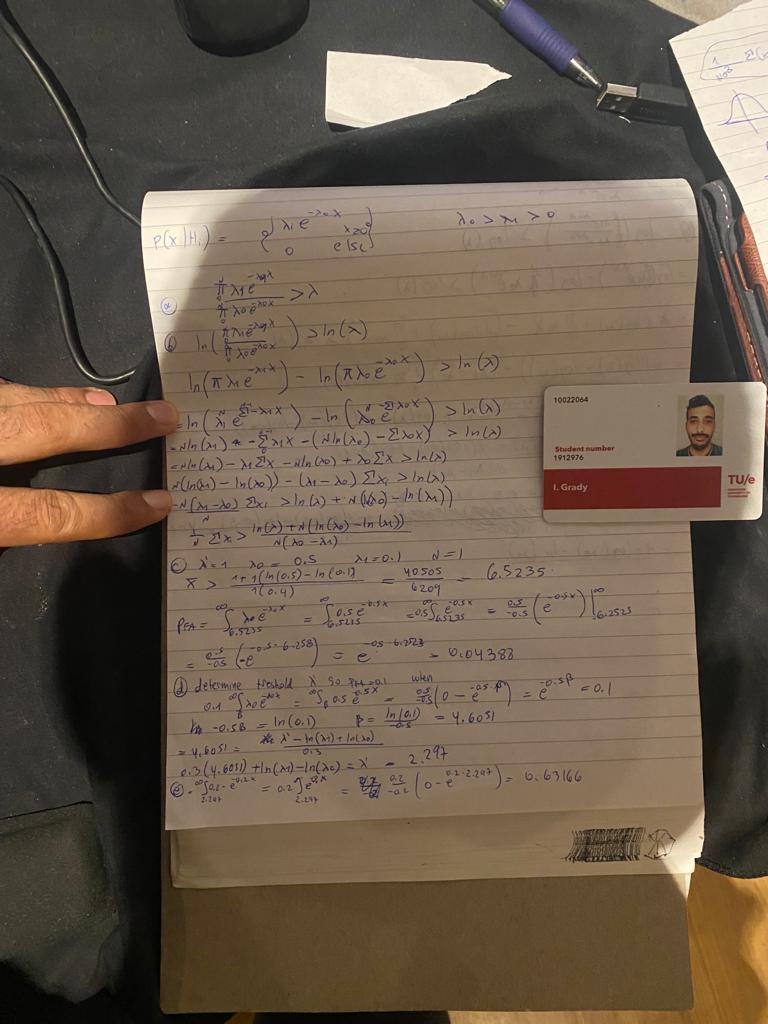 P(x|Hᵢ) = { λᵢ e^{-λ₀x} x≥0 λ₀ > λ₁ > 0
0 else }
ⓐ ∏ λ₁e^{-λ₁x} / ∏ λ₀e^{-λ₀x} > λ
ⓑ ln(∏ λ₁e^{-λ₁x} / ∏ λ₀e^{-λ₀x}) > ln(λ)
ln(π λ₁e^{-λ₁x}) - ln(π λ₀e^{-λ₀x}) > ln(λ)
= ln(λ₁^N e^{Σ-λ₁x}) - ln(λ₀^N e^{-Σλ₀x}) > ln(λ)
= N ln(λ₁) - Σλ₁x - (N ln(λ₀) - Σλ₀x) > ln(λ)
= N ln(λ₁) - λ₁Σx - N ln(λ₀) + λ₀Σx > ln(λ)
N(ln(λ₁) - ln(λ₀)) - (λ₁-λ₀) Σxᵢ > ln(λ)
-N(λ₁-λ₀)/N Σxᵢ > ln(λ) + N(ln(λ0) - ln(λ₁))
1/N Σx > ln(λ) + N(ln(λ₀) - ln(λ₁)) / N(λ₀ - λ₁)
ⓒ λ'=1 λ₀ = 0.5 λ₁=0.1 N=1
x̄ > 1+1(ln(0.5)-ln(0.1)) / 1(0.4) = 40505/6209 = 6.5235
P_FA = ∫_{6.5235}^∞ λ₀e^{-λ₀x} = ∫_{6.5235}^∞ 0.5e^{-0.5x} = 0.5∫_{6.5235}^∞ e^{-0.5x} = 0.5/-0.5 (e^{-0.5x})|_{6.2523}^∞
= 0.5/-0.5 (-e^{-0.5·6.258}) = e^{-0.5·6.2523} = 0.04388
ⓓ determine treshold λ' so P_FA=0.1 when
0.1 ∫_β^∞ λ₀e^{-λ₀x} = ∫_β^∞ 0.5e^{-0.5x} = 0.5/-0.5 (0 - e^{-0.5·β}) = e^{-0.5β} = 0.1
-0.5β = ln(0.1) β = ln(0.1)/-0.5 = 4.6051
= 4.6051 = λ' - ln(λ₁) + ln(λ₀) / 0.3
0.3(4.6051) + ln(λ₁) - ln(λ₀) = λ' = 2.297
ⓔ = ∫_{2.297}^∞ 0.2·e^{-0.2x} = 0.2∫_{2.297}^∞ e^{-0.2x} = 0.2/-0.2 (0 - e^{-0.2·2.297}) = 0.63166
10022064
Student number
1912976
I. Grady
TU/e